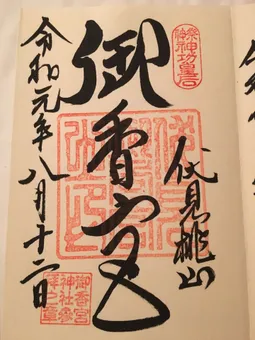 祭神
神功皇后
伏見桃山
御香宮
令和元年八月十二日
御香宮
神社参
拝之章